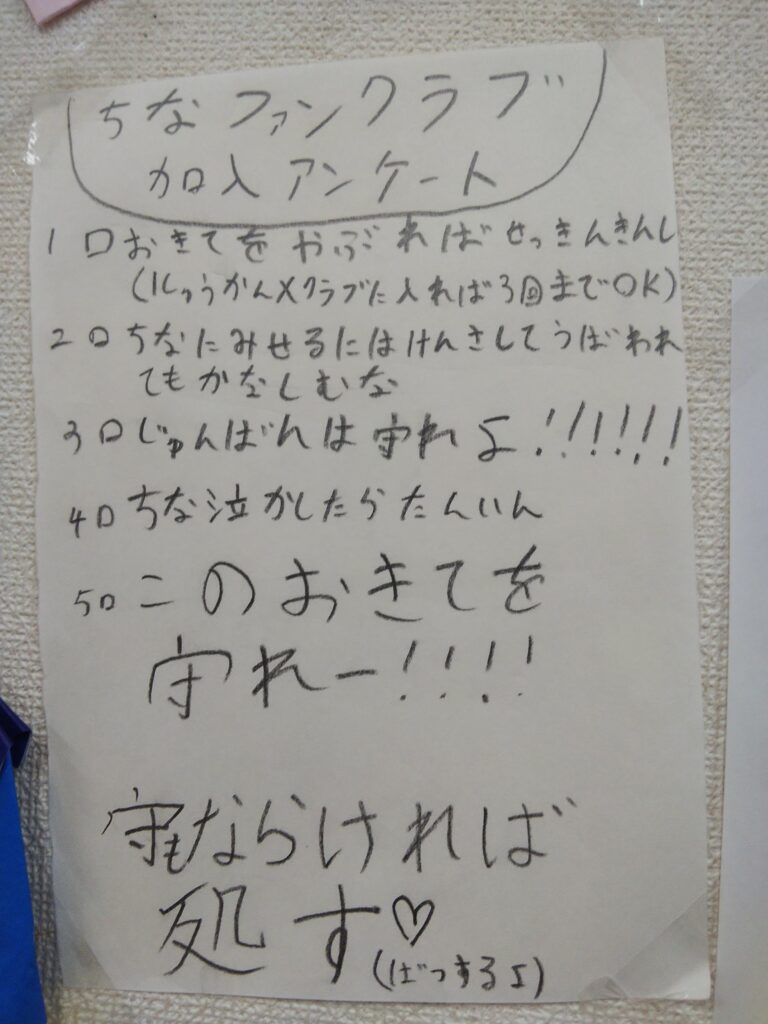 ちなファンクラブ
加入アンケート
1 口おきてをやぶればせっきんきんし
(1しゅうかん×クラブに入れば3回までOK)
2 口ちなにみせるにはけんさしてうばわれ
てもかなしむな
3 口じゅんばんは守れよ!!!!!!
4 口ちな泣かしたらたんいん
5 口このおきてを
守れー!!!!
守もならければ
処す♡
(ばつするよ)